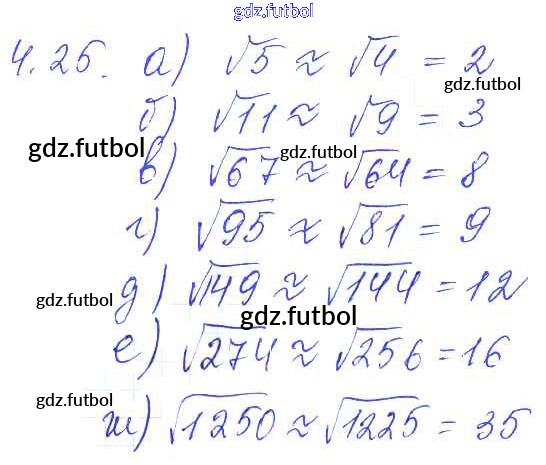 gdz.futbol
4.25. а) √5 ≈ √4 = 2
gdz.futbol
б) √11 ≈ √9 = 3
gdz.futbol
gdz.futbol
в) √67 ≈ √64 = 8
г) √95 ≈ √81 = 9
д) √149 ≈ √144 = 12
gdz.futbol
gdz.futbol
е) √274 ≈ √256 = 16
gdz.futbol
ж) √1250 ≈ √1225 = 35